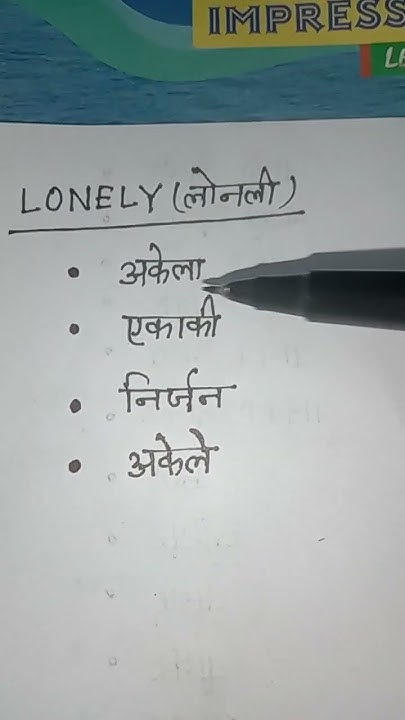 IMPRESS
LONELY (लोनली)
• अकेला
• एकाकी
• निर्जन
• अकेले